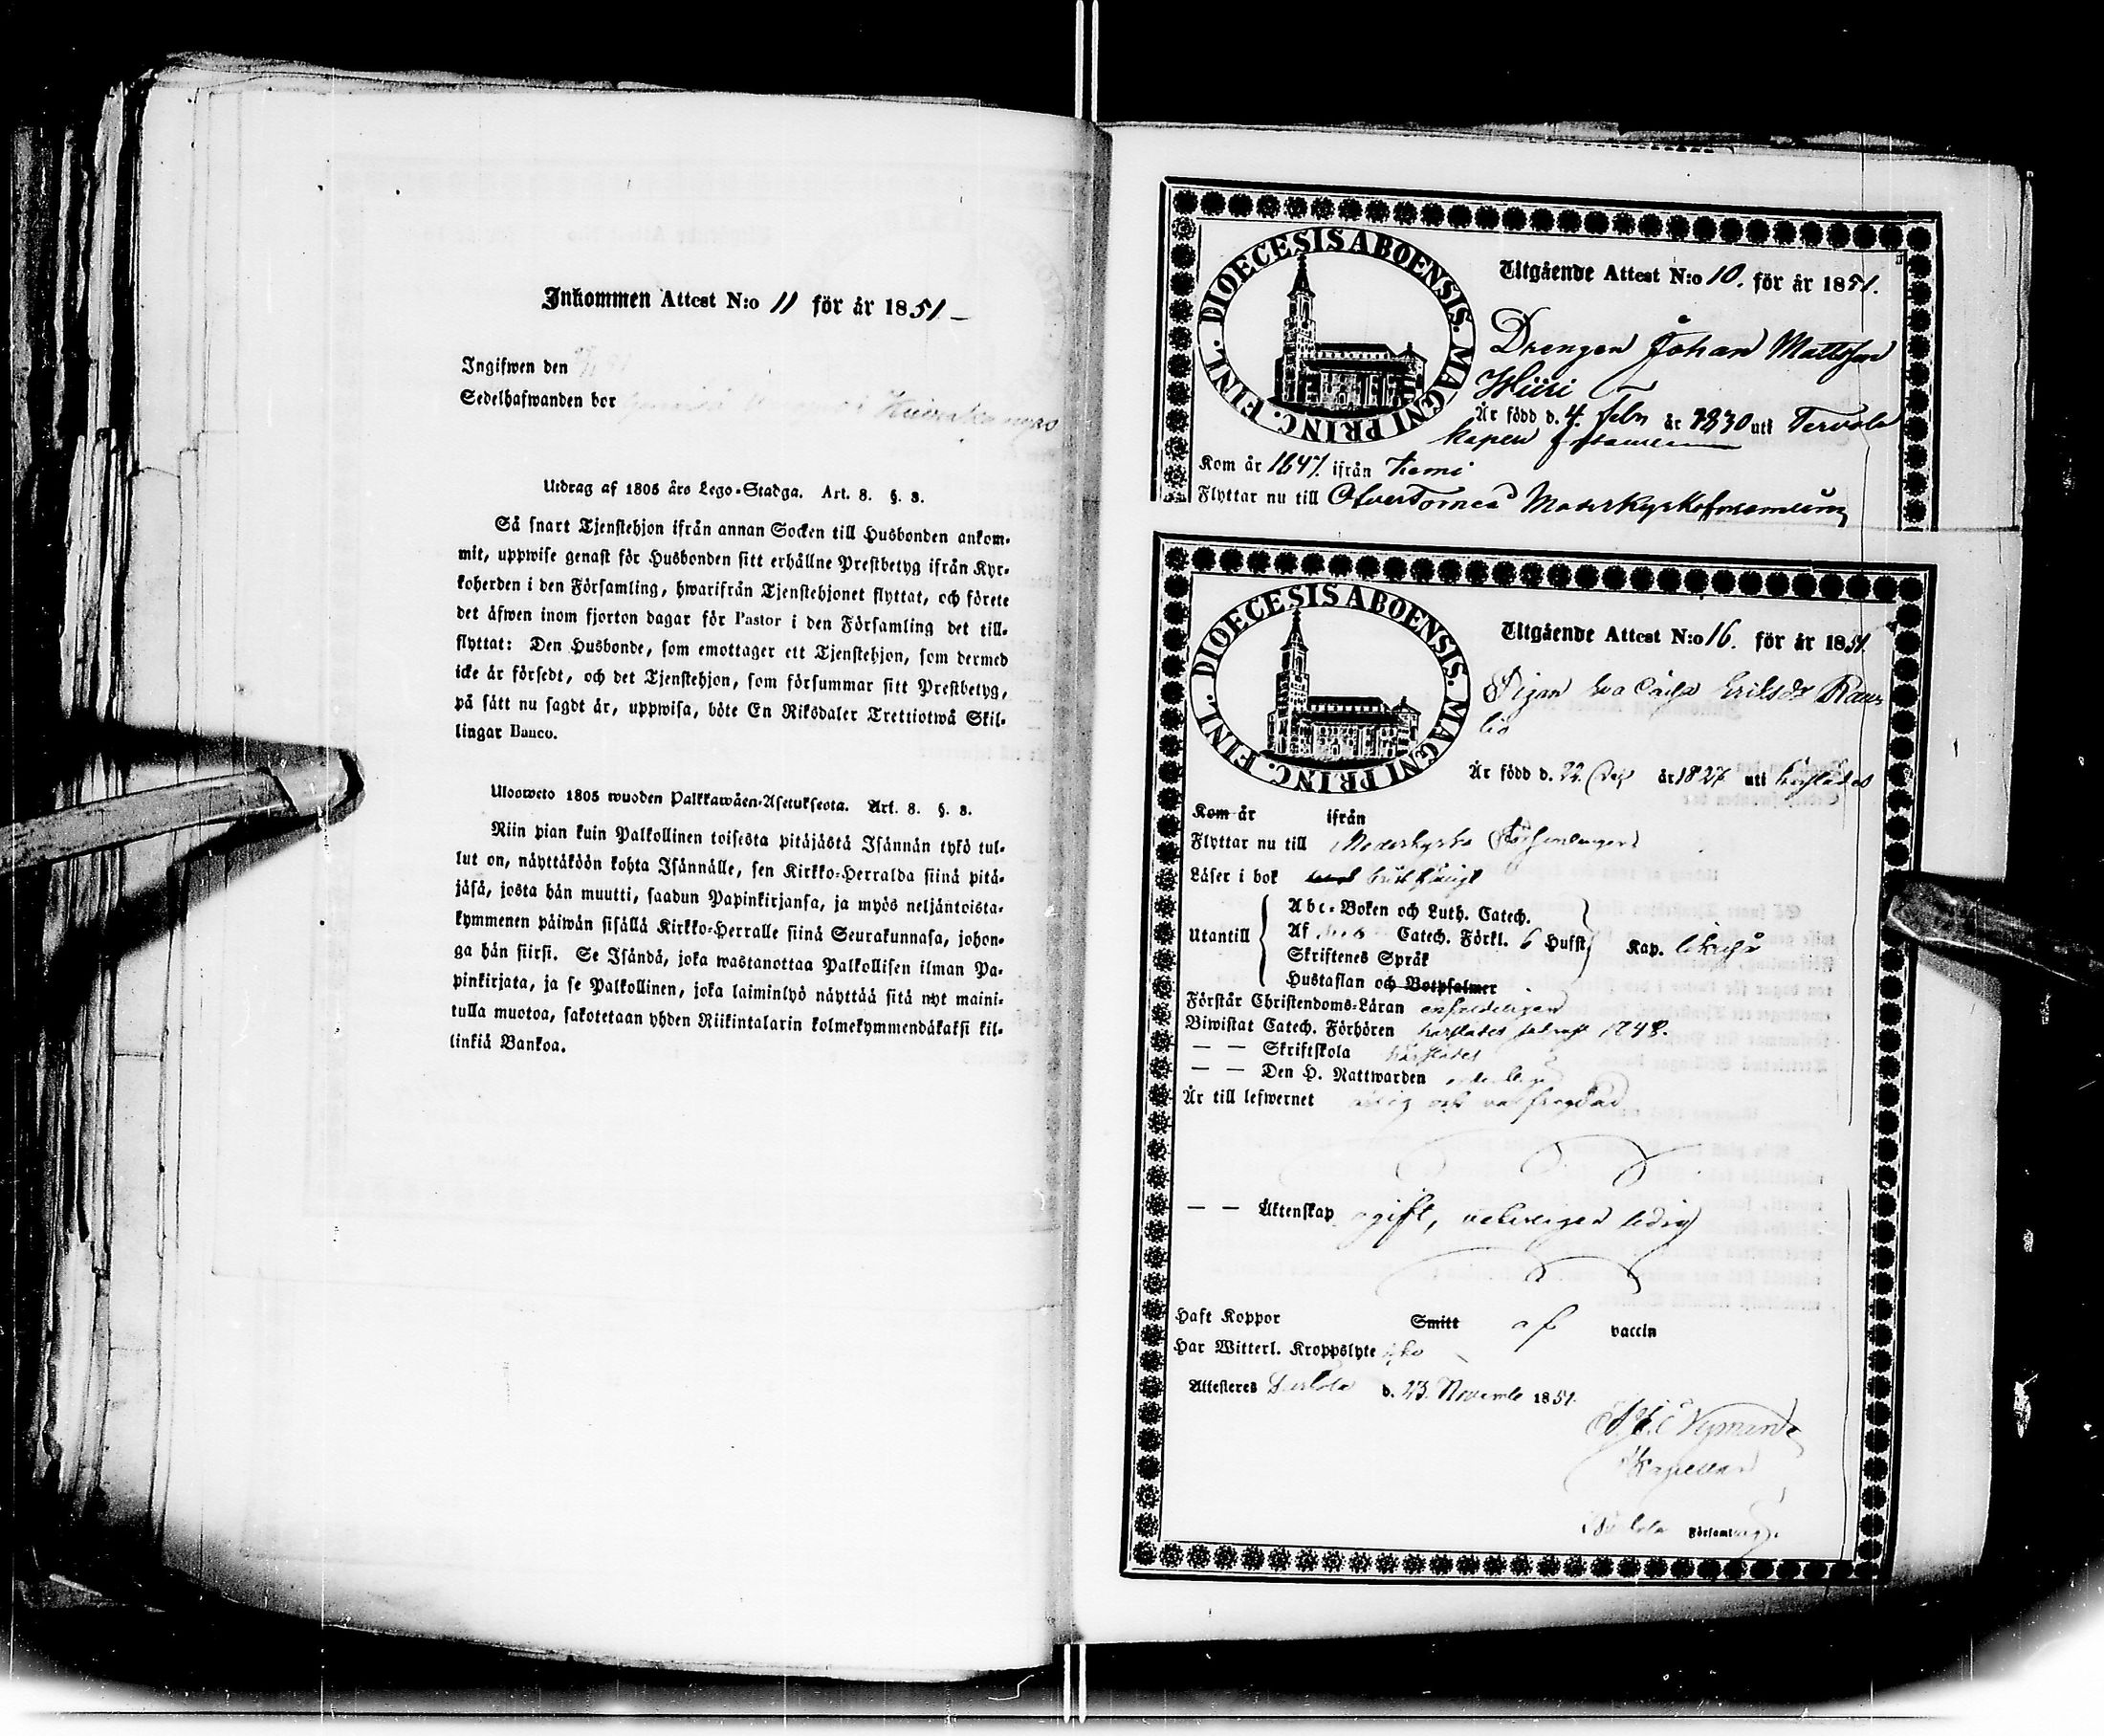 Inkommen Attest N:o 11 för år 1851
Ingifwen den
Sedelhafwanden bor
Utdrag af 1805 års Lego-Stadga. Art. 8. §. 3.
Så snart Tjenstehjon ifrån annan Socken till Husbonden ankom-
mit, uppwise genast för Husbonden sitt erhållne Prestbetyg ifrån Kyr-
koherden i den Församling, hwarifrån Tjenstehjonet flyttat, och förete
det åfwen inom fjorton dagar för Pastor i den Församling det till-
flyttat: Den Husbonde, som emottager ett Tjenstehjon, som dermed
icke är försedt, och det Tjenstehjon, som försummar sitt Prestbetyg,
på sätt nu sagdt är, uppwisa, böte En Riksdaler Trettiotwå Skil-
lingar Banco.
Uloswето 1805 wuoden Palkkawäen-Asetuksesta. Art. 8. §. 3.
Niin pian kuin Palkollinen toisesta pitäjästä Isännän tykö tul-
lut on, näyttäköön kohta Isännälle, sen Kirkko-Herralda siinä pitä-
jäsä, josta hän muutti, saadun Papinkirjansa, ja myös neljäntoista-
kymmenen päiwän sisällä Kirkko-Herralle siinä Seurakunnasa, johon-
ga hän siirsi. Se Isändä, joka wastanottaa Palkollisen ilman Pa-
pinkirjata, ja se Palkollinen, joka laiminlyö näyttää sitä nyt maini-
tulla muotoa, sakotetaan yhden Riikintalarin kolmekymmendäkaksi kil-
linkiä Bankoa.
DIOECESIS ABOENSIS. MAGNI PRINC. FINL.
Utgående Attest N:o 10. för år 1851.
Drengen Johan Mattsson
Hiiri
Är född d. 4 Febr år 1830 uti Tervola
Kapell
Kom år 1847 ifrån Kemi
Flyttar nu till OfverTorneå Moderkyrkoförsamling
DIOECESIS ABOENSIS. MAGNI PRINC. FINL.
Utgående Attest N:o 16. för år 1851
Pigan Eva Cajsa Eriksdr Rau-
tio
Är född d. 22 år 1827 uti härstädes
Kom år ifrån
Flyttar nu till Moderkyrko Församlingen
Läser i bok
Utantill
Abc-Boken och Luth. Catech.
Af Catech. Förkl. 6 Hufst.
Skriftenes Språk
Hustaflan och Botpsalmer
Kap.
Förstår Christendoms-Läran
Biwistat Catech. Förhören härstädes 1848.
— — Skriftskola härstädes
— — Den H. Nattwarden
Är till lefwernet
— — Äktenskap ogift, ledig
Haft Koppor Smitt af vaccin
Har Witterl. Kroppslyte icke
Attesteras d. 23 Novemb 1851.
Nyman
Kapellan
Församling.